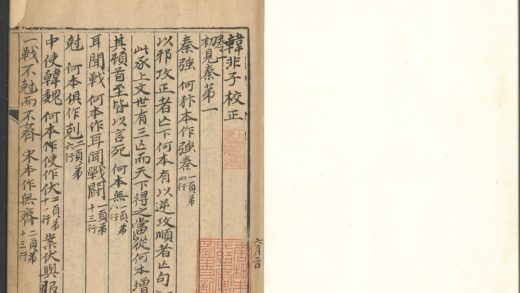 韓非子校正
初見秦第一
秦強 何犿本作強秦 一頁弟四行
以邪攻正者亡下何本有以逆攻順者亡句
此承上文世有三亡而天下得之當從何本增
其頓首至皆以言死 何本無 一頁弟八行
耳聞戰 何本作耳聞戰鬬 一頁弟十三行
尅 何本俱作剋 二頁弟六行
中使韓魏 何本使作伏 二頁弟十一行 案伏與服
一戰不尅而不齊 宋本作無齊 二頁弟十三行